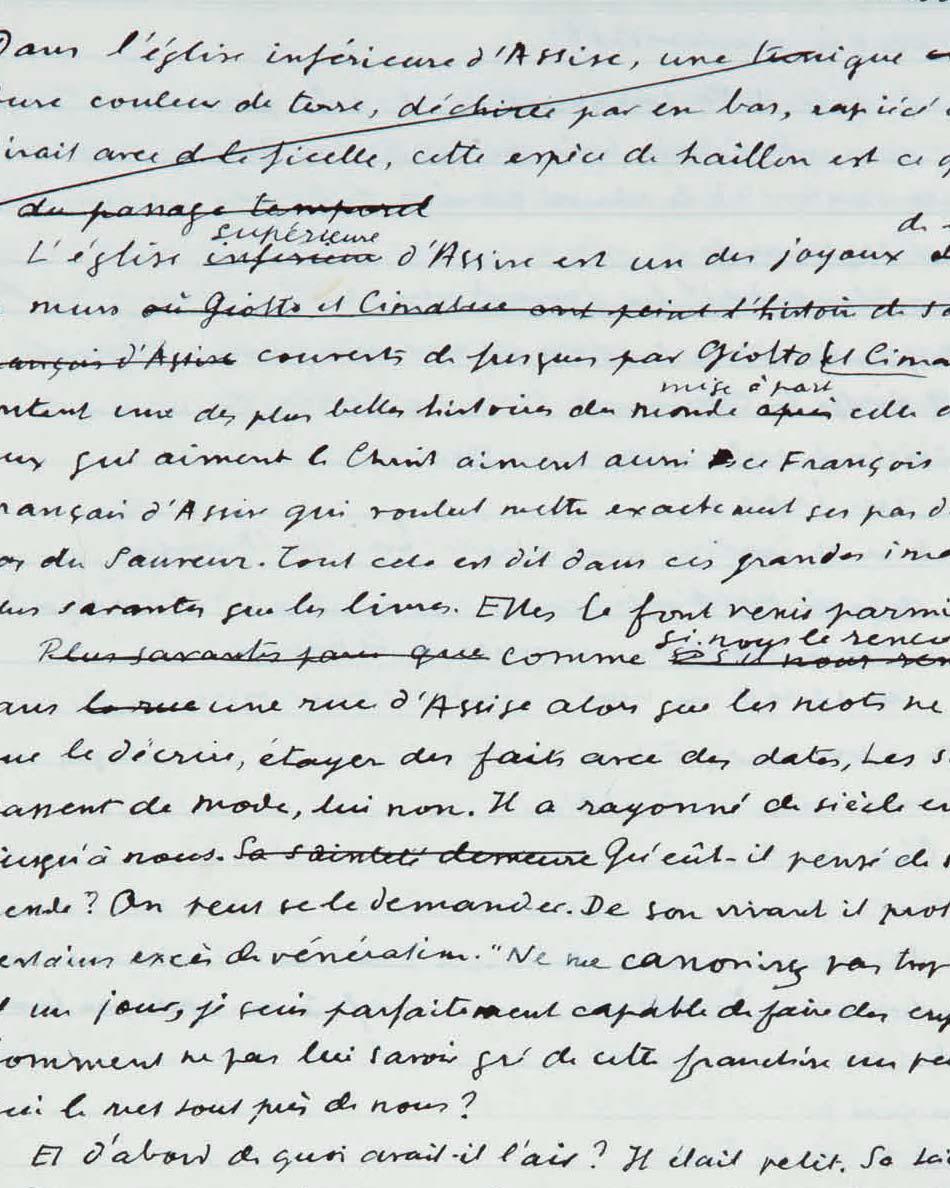 Dans l'église inférieure d'Assise, une tunique
couleur de terre, déchirée par en bas, rapiécé
avec d le ficelle, cette espèce de haillon est ce q
du passage temporel
supérieure de
L'église inférieure d'Assise est un des joyaux
murs où Giotto et Cimabue ont peint l'histoire de sa
ançois d'Assise couverts de fresques par Giotto et Cima
mise à part
ntent une des plus belles histoires du monde après celle d
ux qui aiment le Christ aiment aussi ce François
rançois d'Assise qui voulut mettre exactement ses pas d
du Sauveur. Tout cela est dit dans ces grandes ima
us savantes que les livres. Elles le font venir parmi
si nous le renco
Plus savantes que comme s'il nous ren
ans la rue une rue d'Assise alors que les mots ne
ue le décrire, étayer des faits avec des dates, Les s
assent de mode, lui non. Il a rayonné de siècle en
usqu'à nous. Sa sainteté demeure Qu'eût-il pensé de
ende? On peut se le demander. De son vivant il prot
ertains excès de vénération. "Ne me canonisez pas trop
un jour, je suis parfaitement capable de faire des enf
omment ne pas lui savoir gré de cette franchise un peu
ui le met tout près de nous?
Et d'abord de quoi avait-il l'air? Il était petit. Sa